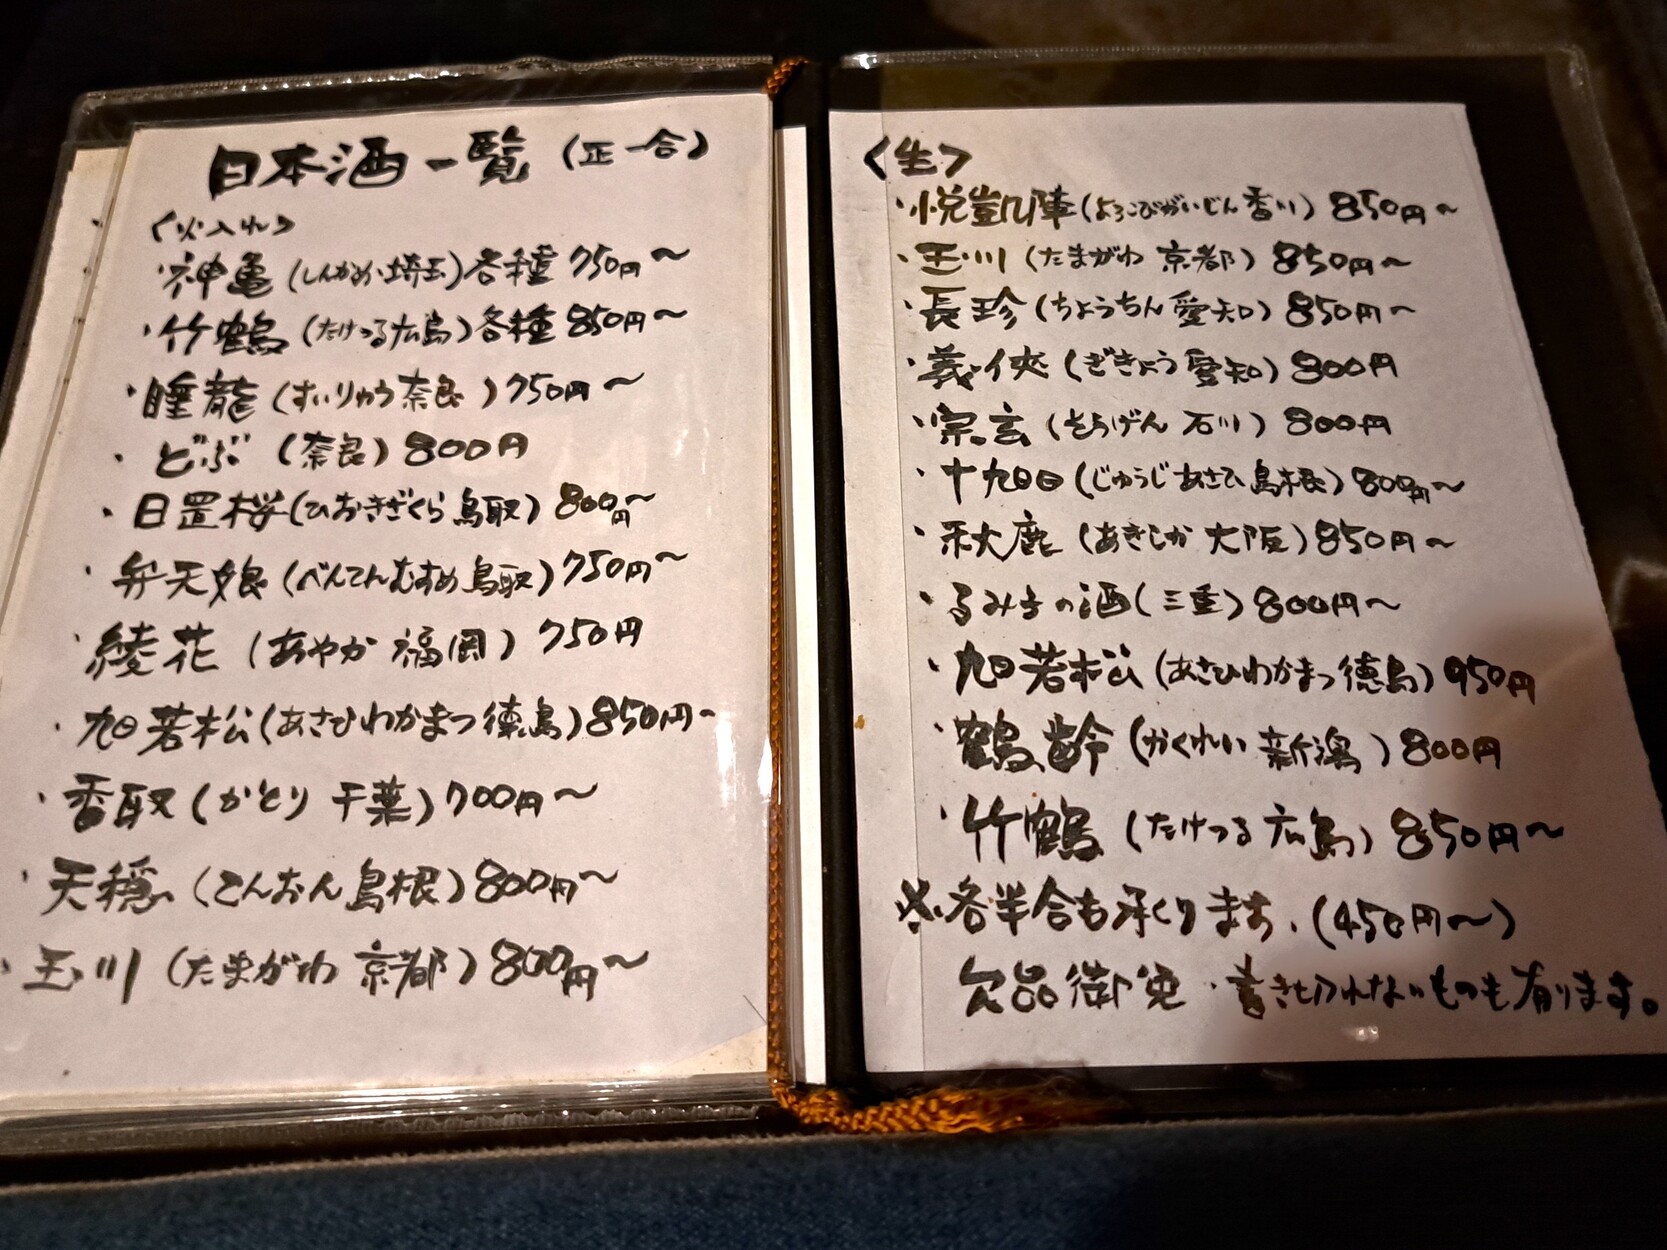 日本酒一覧(正一合)
<火入れ>
・神亀(しんかめ・埼玉)各種 750円〜
・竹鶴(たけつる広島)各種 850円〜
・睡龍(すいりゅう奈良)750円〜
・どぶ(奈良)800円
・日置桜(ひおきざくら鳥取)800円〜
・弁天娘(べんてんむすめ鳥取)750円〜
・綾花(あやか 福岡)750円
・旭若松(あさひわかまつ徳島)850円〜
・香取(かとり 千葉)700円〜
・天穏(てんおん島根)800円〜
・玉川(たまがわ 京都)800円〜
<生>
・悦凱陣(よろこびがいじん 香川)850円〜
・玉川(たまがわ 京都)850円〜
・長珍(ちょうちん 愛知)850円〜
・義侠(ぎきょう 愛知)800円
・宗玄(そうげん 石川)800円
・十旭日(じゅうじあさひ島根)800円〜
・秋鹿(あきしか 大阪)850円〜
・るみ子の酒(三重)800円〜
・旭若松(あさひわかまつ徳島)950円
・鶴齢(かくれい 新潟)800円
・竹鶴(たけつる 広島)850円〜
※各半合も承ります、(450円〜)
欠品御免・書き切れないものも有ります。